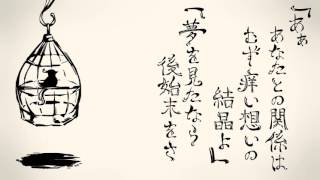 「あぁ
あなたとの関係は
むず痒い想いの
結晶よ」
「夢を見たなら
後始末をさ